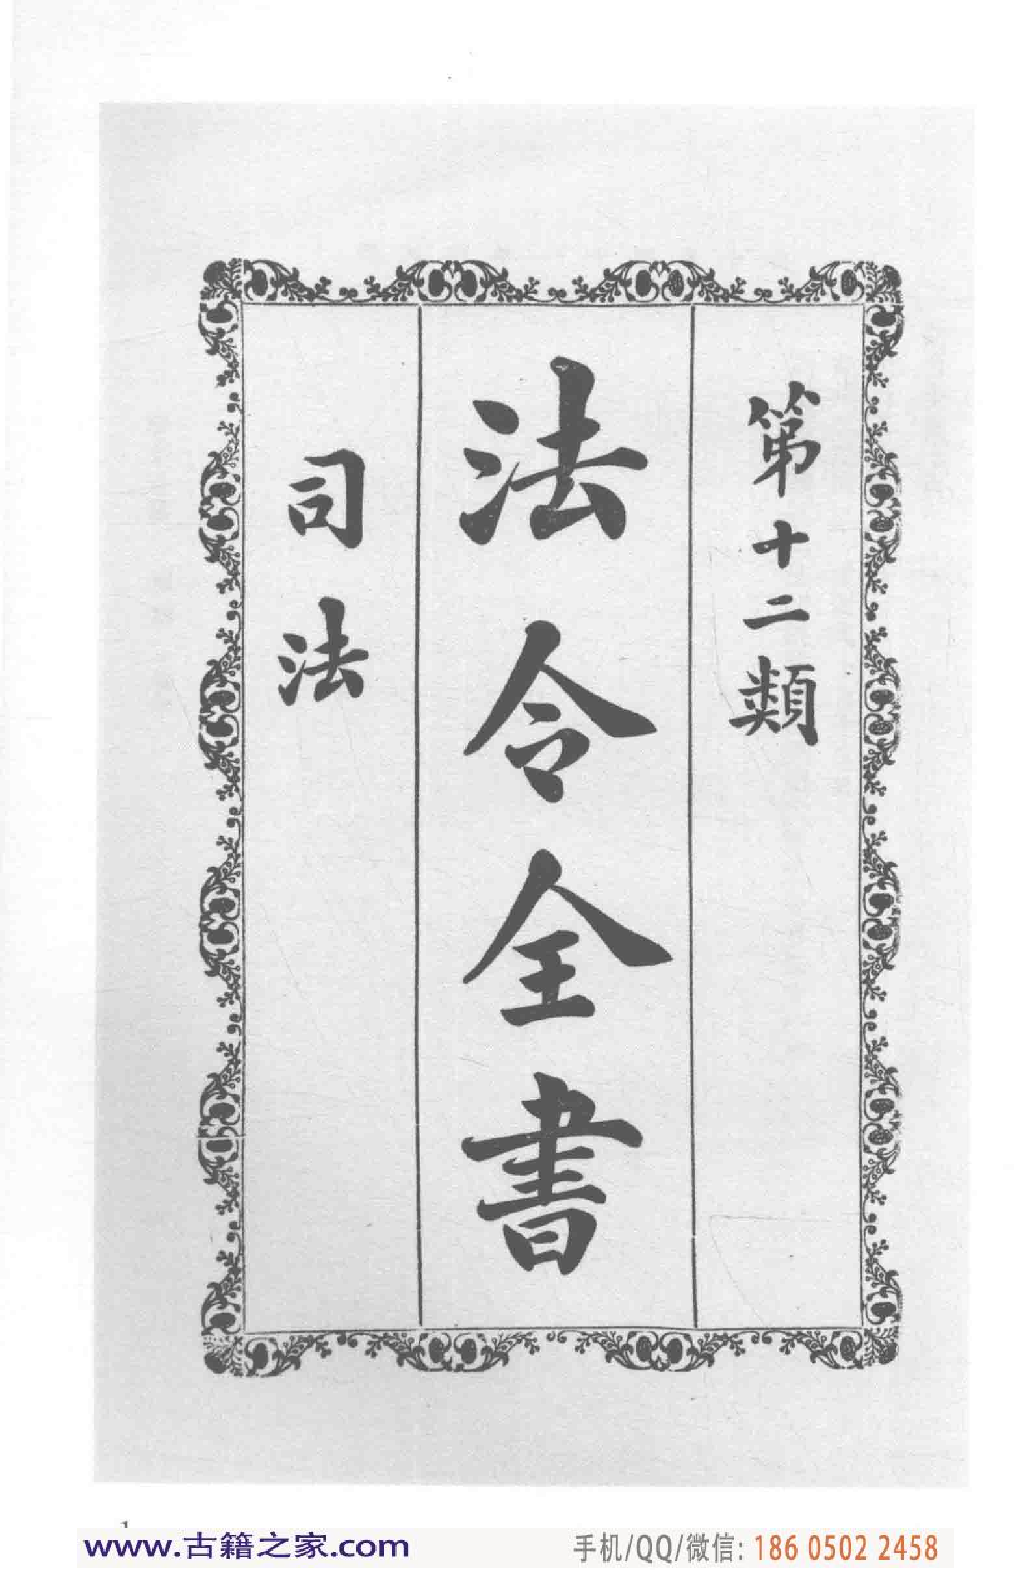 第十二類
法令全書
司法
1
www.古籍之家.com
手机/QQ/微信: 186 0502 2458